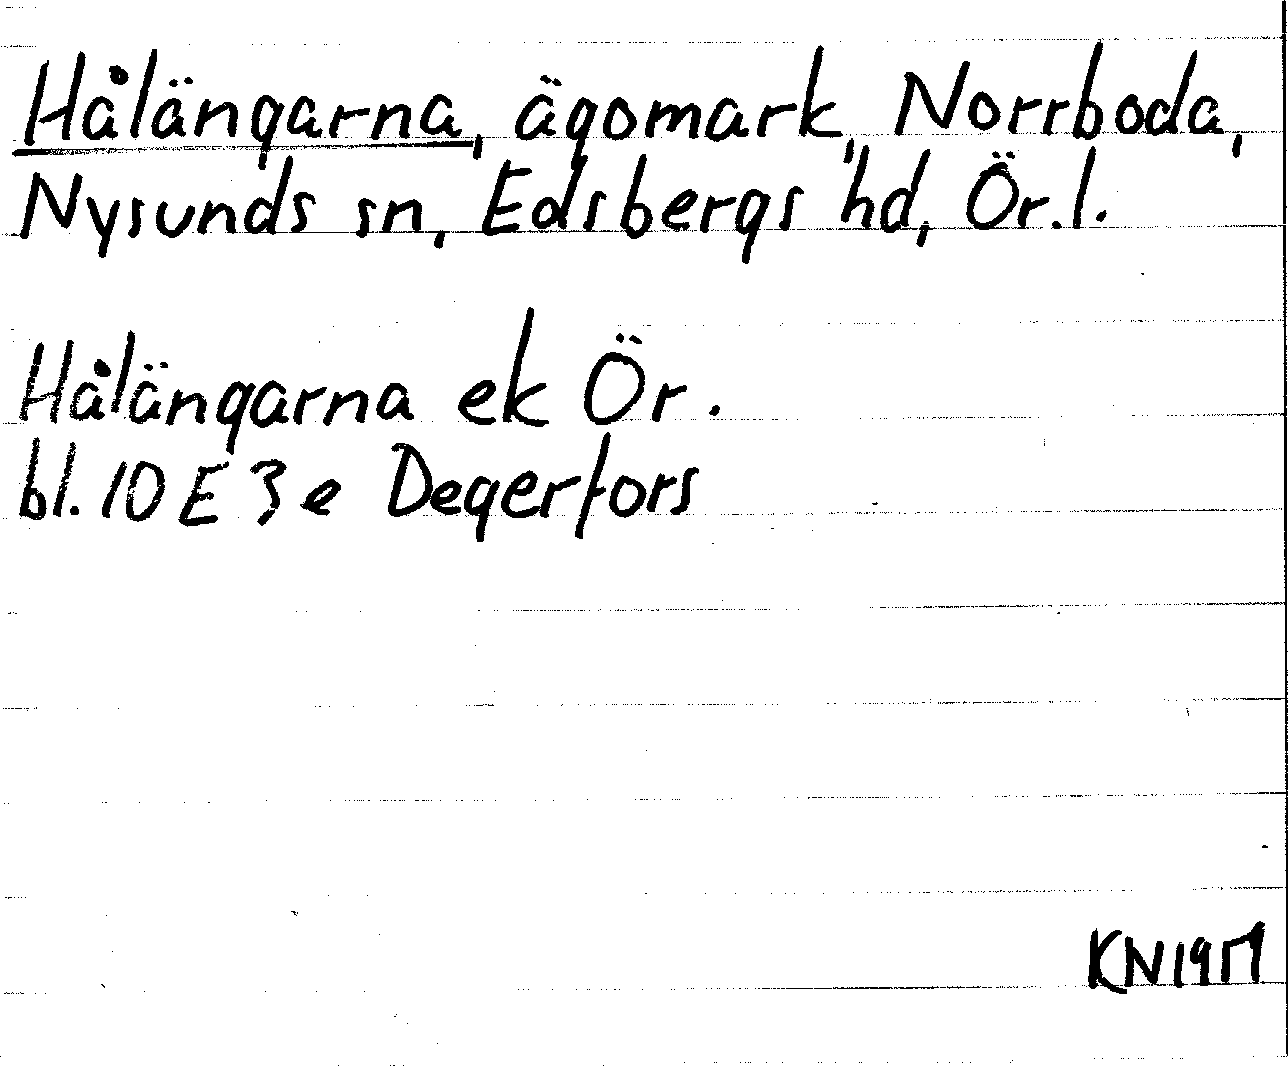 Hålängarna, ägomark, Norrboda,
Nysunds sn, Edsbergs hd, Ör.l.
Hålängarna ek Ör.
bl. 10 E 3 e Degerfors